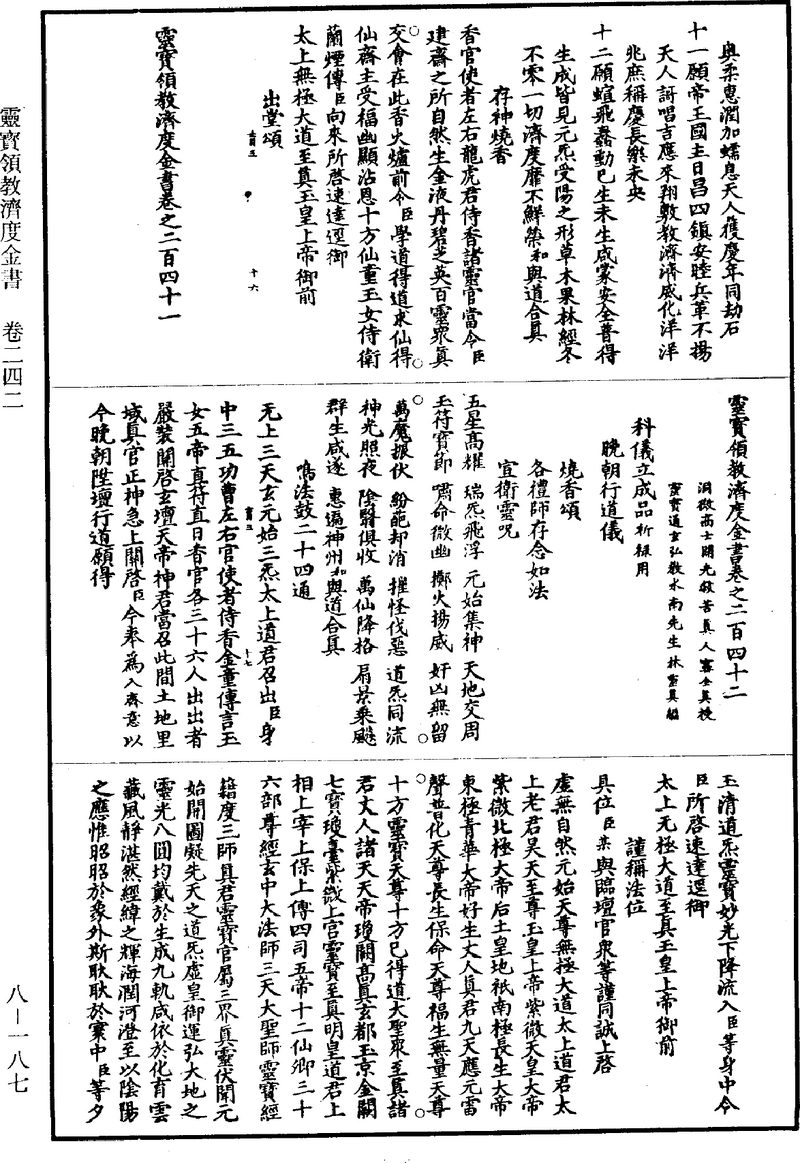 靈寶領教濟度金書 卷二四二
奥柔惠潤加蠕息天人獲慶年同劫石
十一願帝王國主日昌四鎮安睦兵革不揚
天人謌唱吉應來翔敷教濟濟威化洋洋
兆庶稱慶長樂未央
十二願蝖飛蠢動已生未生咸蒙安全普得
生成皆見元炁受陽之形草木果林經冬
不零一切濟度靡不鮮榮和與道合真
存神燒香
香官使者左右龍虎君侍香諸靈官當令臣
建齋之所自然生金液丹碧芝英百靈眾真
交會在此香火爐前令臣學道得道求仙得
仙齋主受福幽顯沾恩十方仙童玉女侍衛
蘭煙傳臣向來所啓速達逕御
太上無極大道至真玉皇上帝御前
出堂頌
十六
靈寶領教濟度金書卷之二百四十一
靈寶領教濟度金書卷之二百四十二
洞微高士開光救苦真人甯全真授
靈寶通玄弘教水南先生林靈真編
科儀立成品祈禳用
晚朝行道儀
燒香頌
各禮師存念如法
宣衛靈咒
五星高耀 瑞炁飛浮 元始集神 天地交周
玉符寶節 嘯命微幽 擲火揚威 奸凶無留
萬魔振伏 紛葩却消 摧怪伐惡 道炁同流
神光照夜 陰翳俱收 萬仙降格 扇景乘飈
群生咸遂 惠遍神州和與道合真
鳴法鼓二十四通
无上三天玄元始三炁太上道君召出臣身
十七
中三五功曹左右官使者侍香金童傳言玉
女五帝直符直日香官各三十六人出出者
嚴裝關啓玄壇天帝神君當召此間土地里
域真官正神急上關啓臣今奉爲入齋意以
今晚朝陞壇行道願得
玉清道炁靈寶妙光下降流入臣等身中令
臣所啓速達逕御
太上无極大道至真玉皇上帝御前
謹稱法位
具位臣某與臨壇官眾等謹同誠上啓
虛無自然元始天尊無極大道太上道君太
上老君昊天至尊玉皇上帝紫微天皇大帝
紫微北極大帝后土皇地祇南極長生大帝
東極青華大帝好生丈人真君九天應元雷
聲普化天尊長生保命天尊福生無量天尊
十方靈寶天尊十方已得道大聖眾至真諸
君丈人諸天天帝瓊闕高真玄都玉京金闕
七寶瓊臺紫微上宫靈寶至真明皇道君上
相上宰上保上傅四司五帝十二仙卿三十
六部尊經玄中大法師三天大聖師靈寶經
籍度三師真君靈寶官屬三界真靈伏聞元
始開圖凝先天之道炁虛皇御運弘大地之
靈光八圓均戴於生成九軌咸依於化育雲
藏風靜湛然經緯之輝海潤河澄至以陰陽
之應惟昭昭於象外斯耿耿於寰中臣等夕
八－一八七